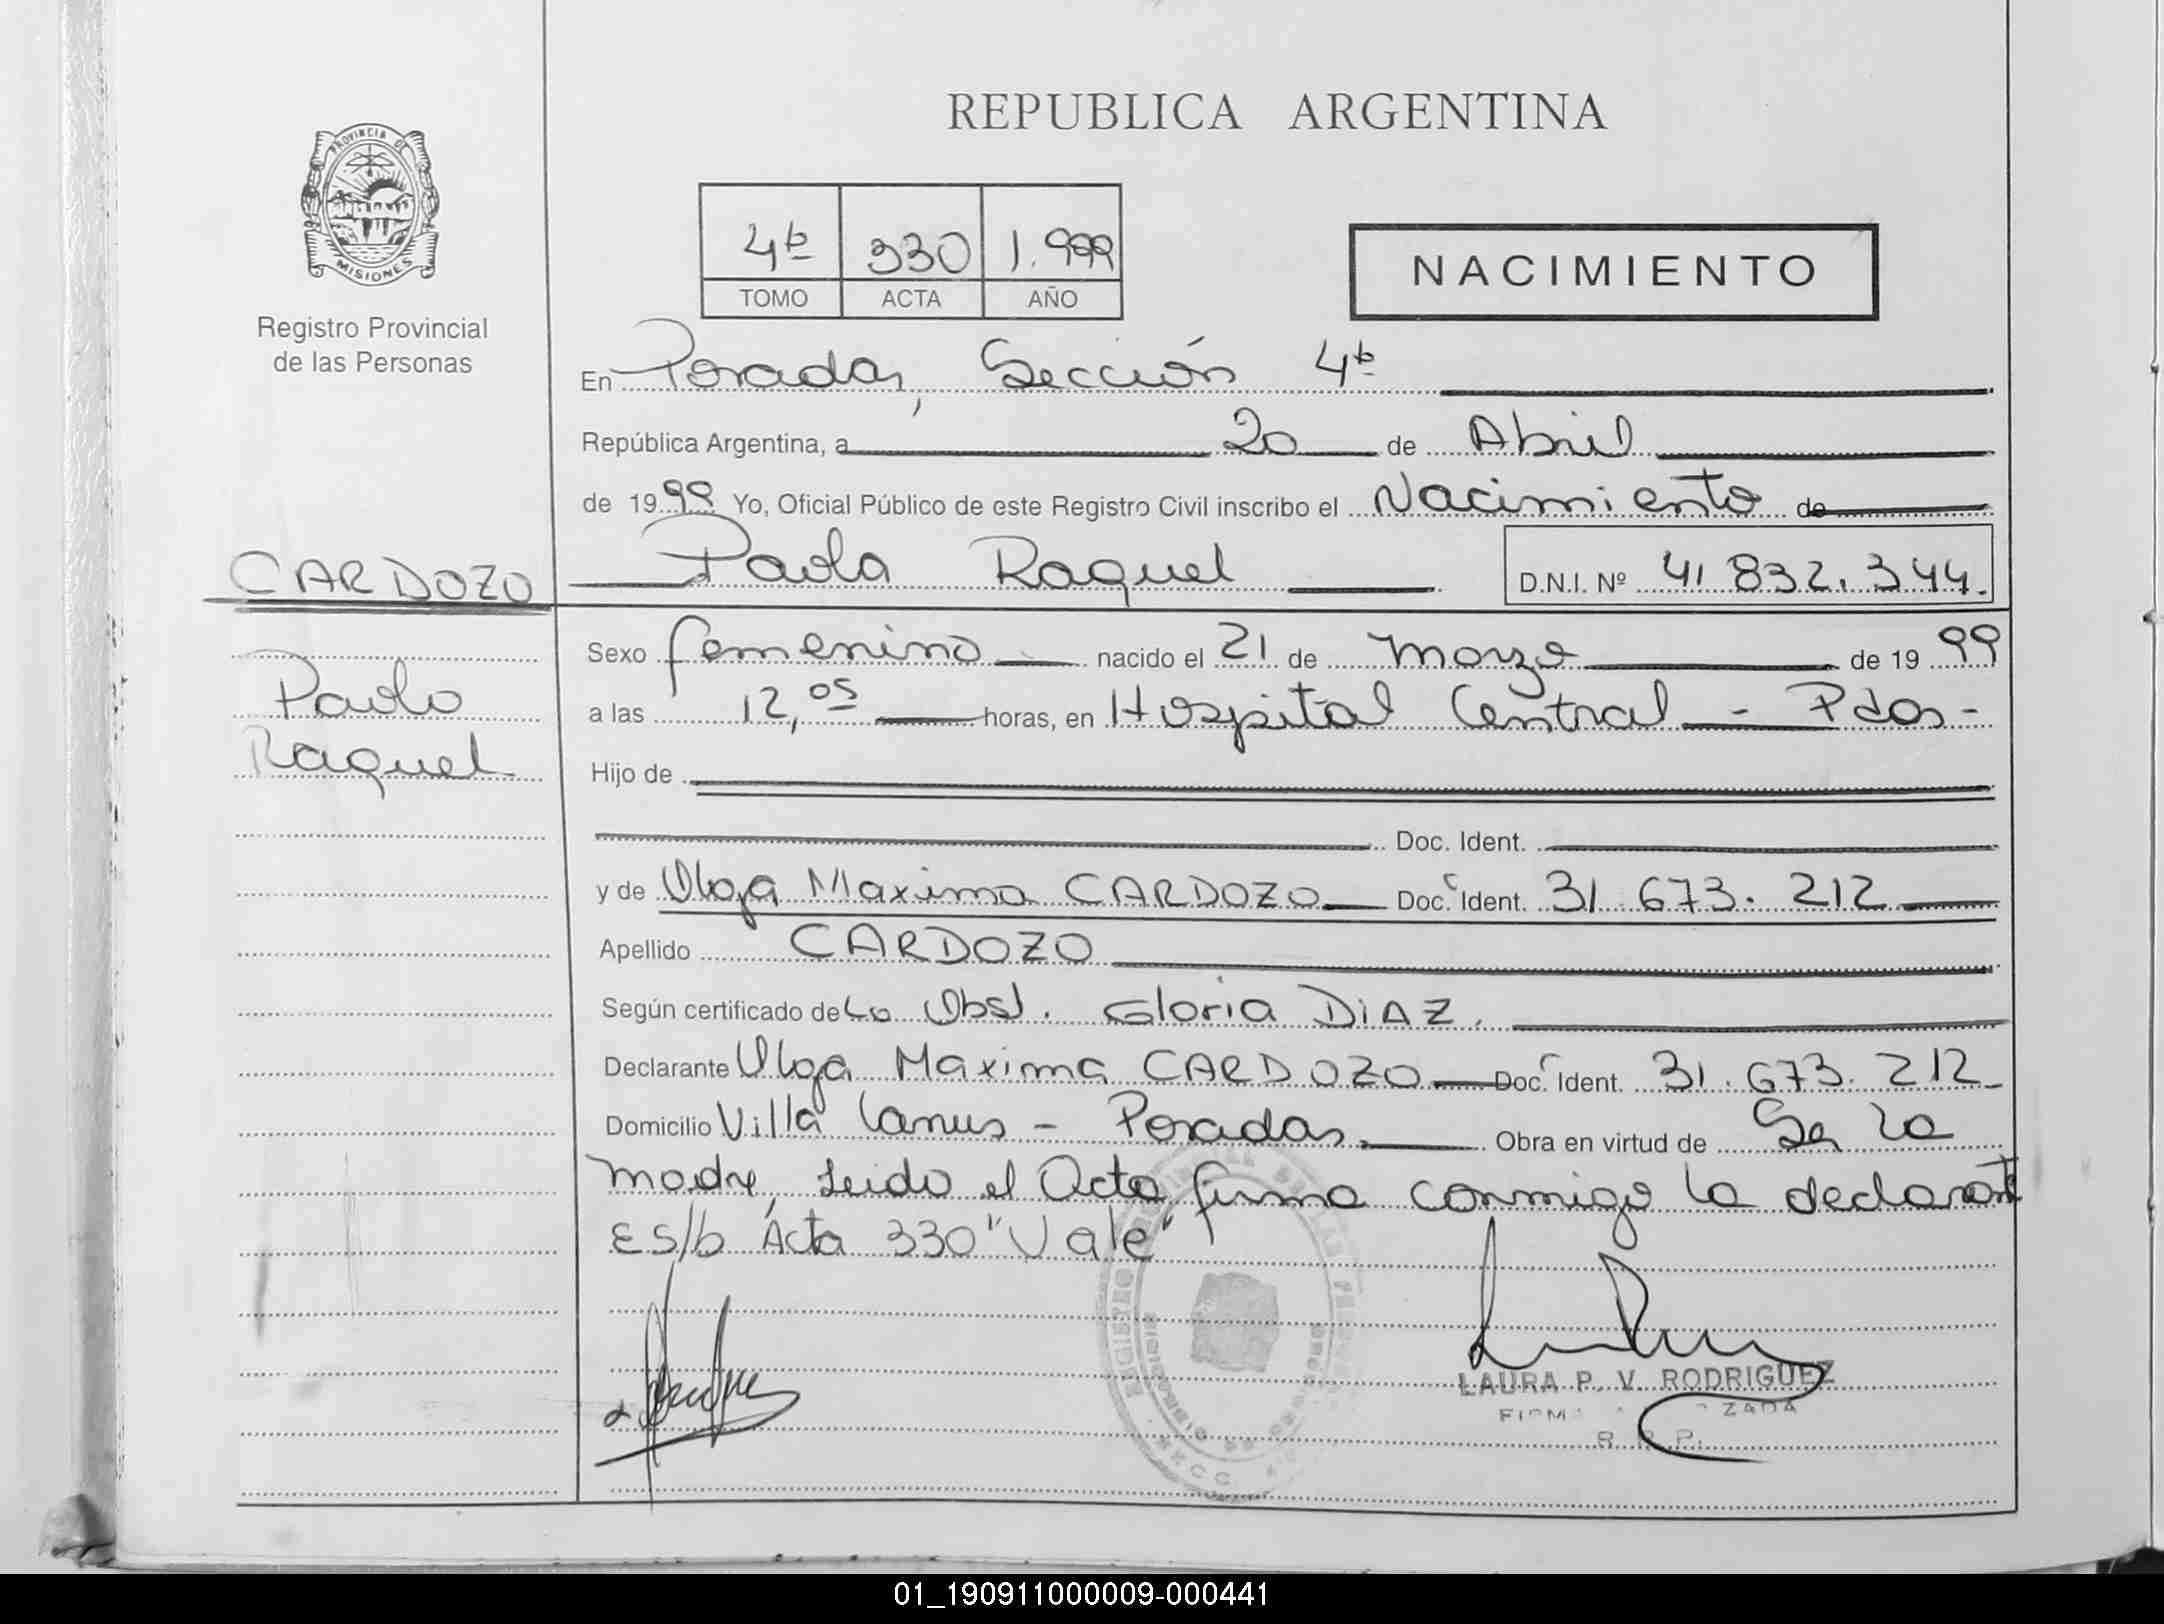 REPUBLICA ARGENTINA
PROVINCIA DE
MISIONES
Registro Provincial
de las Personas
4ª 330 1.999
TOMO ACTA AÑO
NACIMIENTO
En Posadas, Sección 4ª
República Argentina, a 20 de Abril
de 1999 Yo, Oficial Público de este Registro Civil inscribo el Nacimiento de
CARDOZO
Paola Raquel D.N.I. Nº 41.832.344.
Paola
Raquel
Sexo femenino nacido el 21 de Marzo de 1999
a las 12,05 horas, en Hospital Central - Pdas-
Hijo de
Doc. Ident.
y de Olga Maxima CARDOZO Doc. Ident. 31.673.212
Apellido CARDOZO
Según certificado de La Obst. Gloria DiAZ.
Declarante Olga Maxima CARDOZO Doc. Ident. 31.673.212
Domicilio Villa Lanus - Posadas. Obra en virtud de Ser la
madre, Leido el Acta firma conmigo la declarante
ES/b Acta 330 "Vale"
LAURA P. V. RODRIGUEZ
R.P.P.
01_190911000009-000441